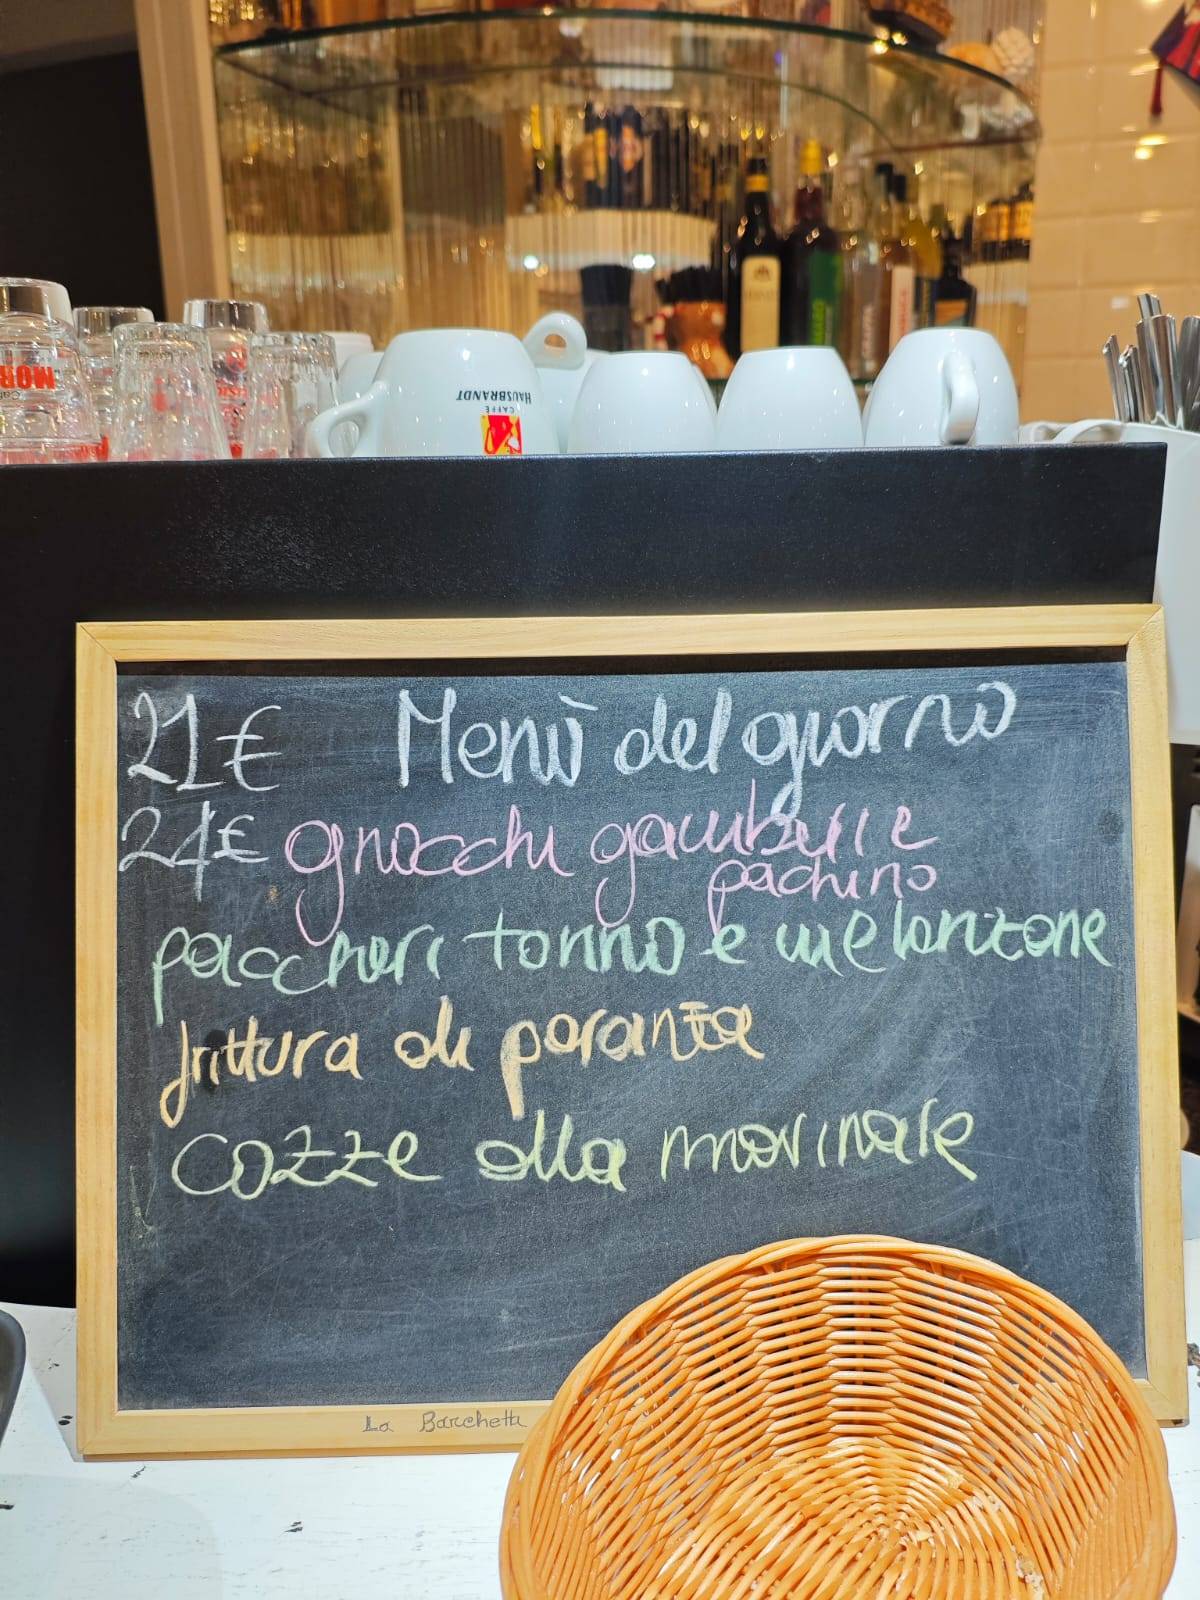 MOR
HAUSBRANDT
CAFFE
21€ Menù del giorno
24€ gnocchi gamberi e
pachino
paccheri tonno e melanzane
frittura di paranza
cozze alla marinara
La Barchetta